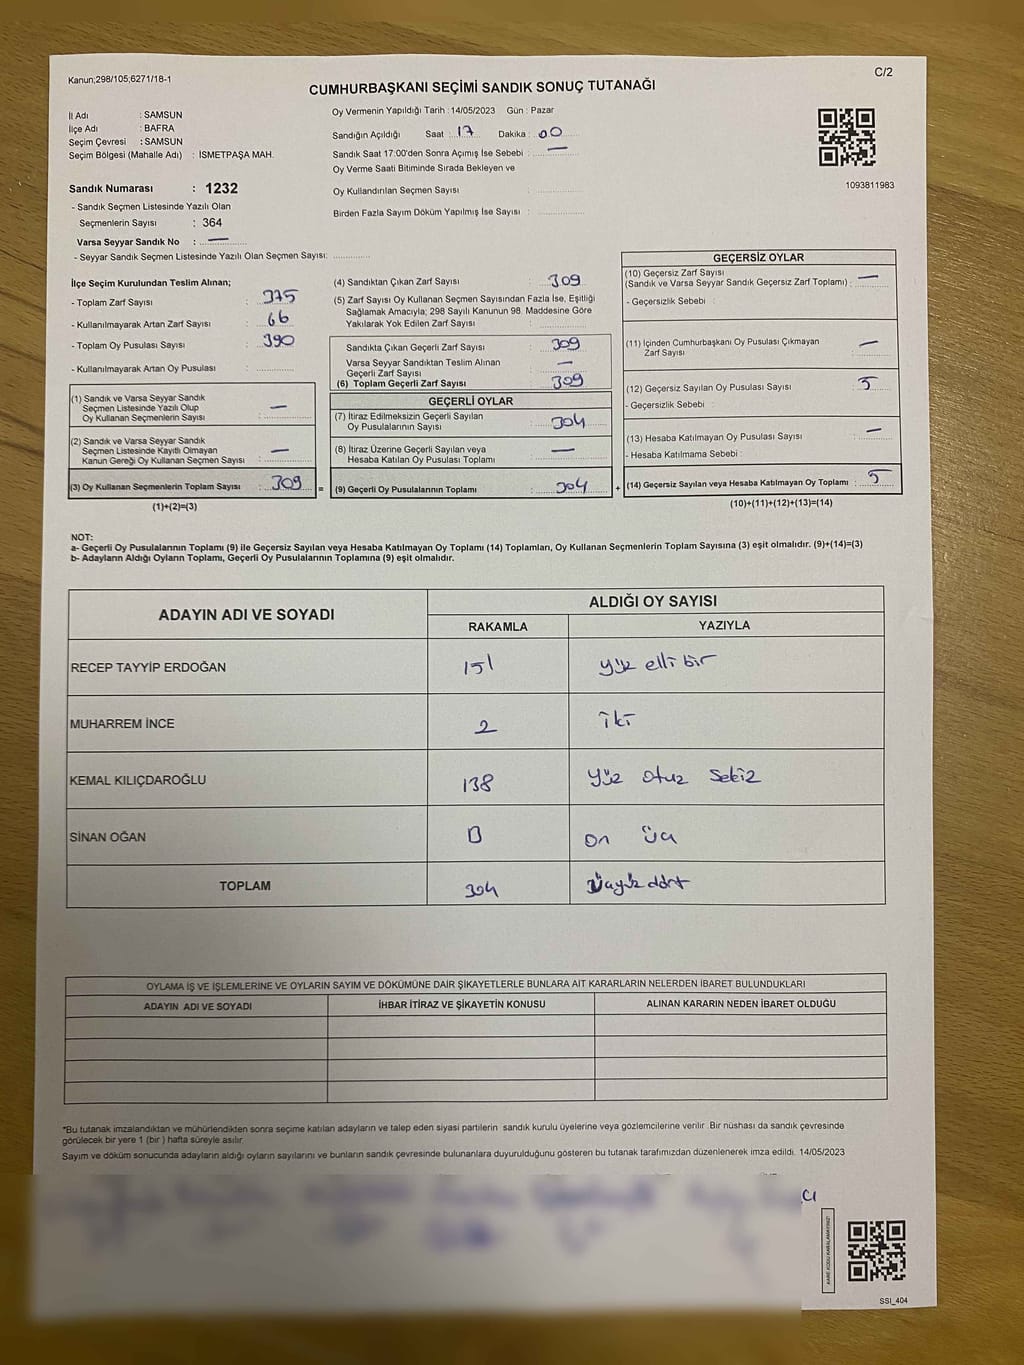 Kanun;298/105;6271/18-1
C/2
CUMHURBAŞKANI SEÇİMİ SANDIK SONUÇ TUTANAĞI
İl Adı : SAMSUN
İlçe Adı : BAFRA
Seçim Çevresi : SAMSUN
Seçim Bölgesi (Mahalle Adı) : İSMETPAŞA MAH.
Oy Vermenin Yapıldığı Tarih : 14/05/2023 Gün : Pazar
Sandığın Açıldığı Saat : 17 Dakika : 00
Sandık Saat 17:00'den Sonra Açımış İse Sebebi : —
Oy Verme Saati Bitiminde Sırada Bekleyen ve
Oy Kullandırılan Seçmen Sayısı :
Birden Fazla Sayım Döküm Yapılmış İse Sayısı :
1093811983
Sandık Numarası : 1232
- Sandık Seçmen Listesinde Yazılı Olan
Seçmenlerin Sayısı : 364
Varsa Seyyar Sandık No : —
- Seyyar Sandık Seçmen Listesinde Yazılı Olan Seçmen Sayısı:
İlçe Seçim Kurulundan Teslim Alınan;
- Toplam Zarf Sayısı : 375
- Kullanılmayarak Artan Zarf Sayısı : 66
- Toplam Oy Pusulası Sayısı : 390
- Kullanılmayarak Artan Oy Pusulası :
(1) Sandık ve Varsa Seyyar Sandık
Seçmen Listesinde Yazılı Olup
Oy Kullanan Seçmenlerin Sayısı : —
(2) Sandık ve Varsa Seyyar Sandık
Seçmen Listesinde Kayıtlı Olmayan
Kanun Gereği Oy Kullanan Seçmen Sayısı : —
(3) Oy Kullanan Seçmenlerin Toplam Sayısı : 309 =
(1)+(2)=(3)
(4) Sandıktan Çıkan Zarf Sayısı : 309
(5) Zarf Sayısı Oy Kullanan Seçmen Sayısından Fazla İse, Eşitliği
Sağlamak Amacıyla; 298 Sayılı Kanunun 98. Maddesine Göre
Yakılarak Yok Edilen Zarf Sayısı :
Sandıkta Çıkan Geçerli Zarf Sayısı : 309
Varsa Seyyar Sandıktan Teslim Alınan
Geçerli Zarf Sayısı : —
(6) Toplam Geçerli Zarf Sayısı : 309
GEÇERLİ OYLAR
(7) İtiraz Edilmeksizin Geçerli Sayılan
Oy Pusulalarının Sayısı : 304
(8) İtiraz Üzerine Geçerli Sayılan veya
Hesaba Katılan Oy Pusulası Toplamı : —
(9) Geçerli Oy Pusulalarının Toplamı : 304 +
GEÇERSİZ OYLAR
(10) Geçersiz Zarf Sayısı
(Sandık ve Varsa Seyyar Sandık Geçersiz Zarf Toplamı) : —
- Geçersizlik Sebebi :
(11) İçinden Cumhurbaşkanı Oy Pusulası Çıkmayan
Zarf Sayısı : —
(12) Geçersiz Sayılan Oy Pusulası Sayısı : 5
- Geçersizlik Sebebi :
(13) Hesaba Katılmayan Oy Pusulası Sayısı : —
- Hesaba Katılmama Sebebi :
(14) Geçersiz Sayılan veya Hesaba Katılmayan Oy Toplamı : 5
(10)+(11)+(12)+(13)=(14)
NOT:
a- Geçerli Oy Pusulalarının Toplamı (9) ile Geçersiz Sayılan veya Hesaba Katılmayan Oy Toplamı (14) Toplamları, Oy Kullanan Seçmenlerin Toplam Sayısına (3) eşit olmalıdır. (9)+(14)=(3)
b- Adayların Aldığı Oyların Toplamı, Geçerli Oy Pusulalarının Toplamına (9) eşit olmalıdır.
ADAYIN ADI VE SOYADI
ALDIĞI OY SAYISI
RAKAMLA YAZIYLA
RECEP TAYYİP ERDOĞAN 151 yüz elli bir
MUHARREM İNCE 2 iki
KEMAL KILIÇDAROĞLU 138 yüz otuz sekiz
SİNAN OĞAN 13 on üç
TOPLAM 304 üçyüz dört
OYLAMA İŞ VE İŞLEMLERİNE VE OYLARIN SAYIM VE DÖKÜMÜNE DAİR ŞİKAYETLERLE BUNLARA AİT KARARLARIN NELERDEN İBARET BULUNDUKLARI
ADAYIN ADI VE SOYADI İHBAR İTİRAZ VE ŞİKAYETİN KONUSU ALINAN KARARIN NEDEN İBARET OLDUĞU
*Bu tutanak imzalandıktan ve mühürlendikten sonra seçime katılan adayların ve talep eden siyasi partilerin sandık kurulu üyelerine veya gözlemcilerine verilir .Bir nüshası da sandık çevresinde
görülecek bir yere 1 (bir ) hafta süreyle asılır.
Sayım ve döküm sonucunda adayların aldığı oyların sayılarını ve bunların sandık çevresinde bulunanlara duyurulduğunu gösteren bu tutanak tarafımızdan düzenlenerek imza edildi. 14/05/2023
KARE KODU KARALAMAYINIZ!
SSI_404